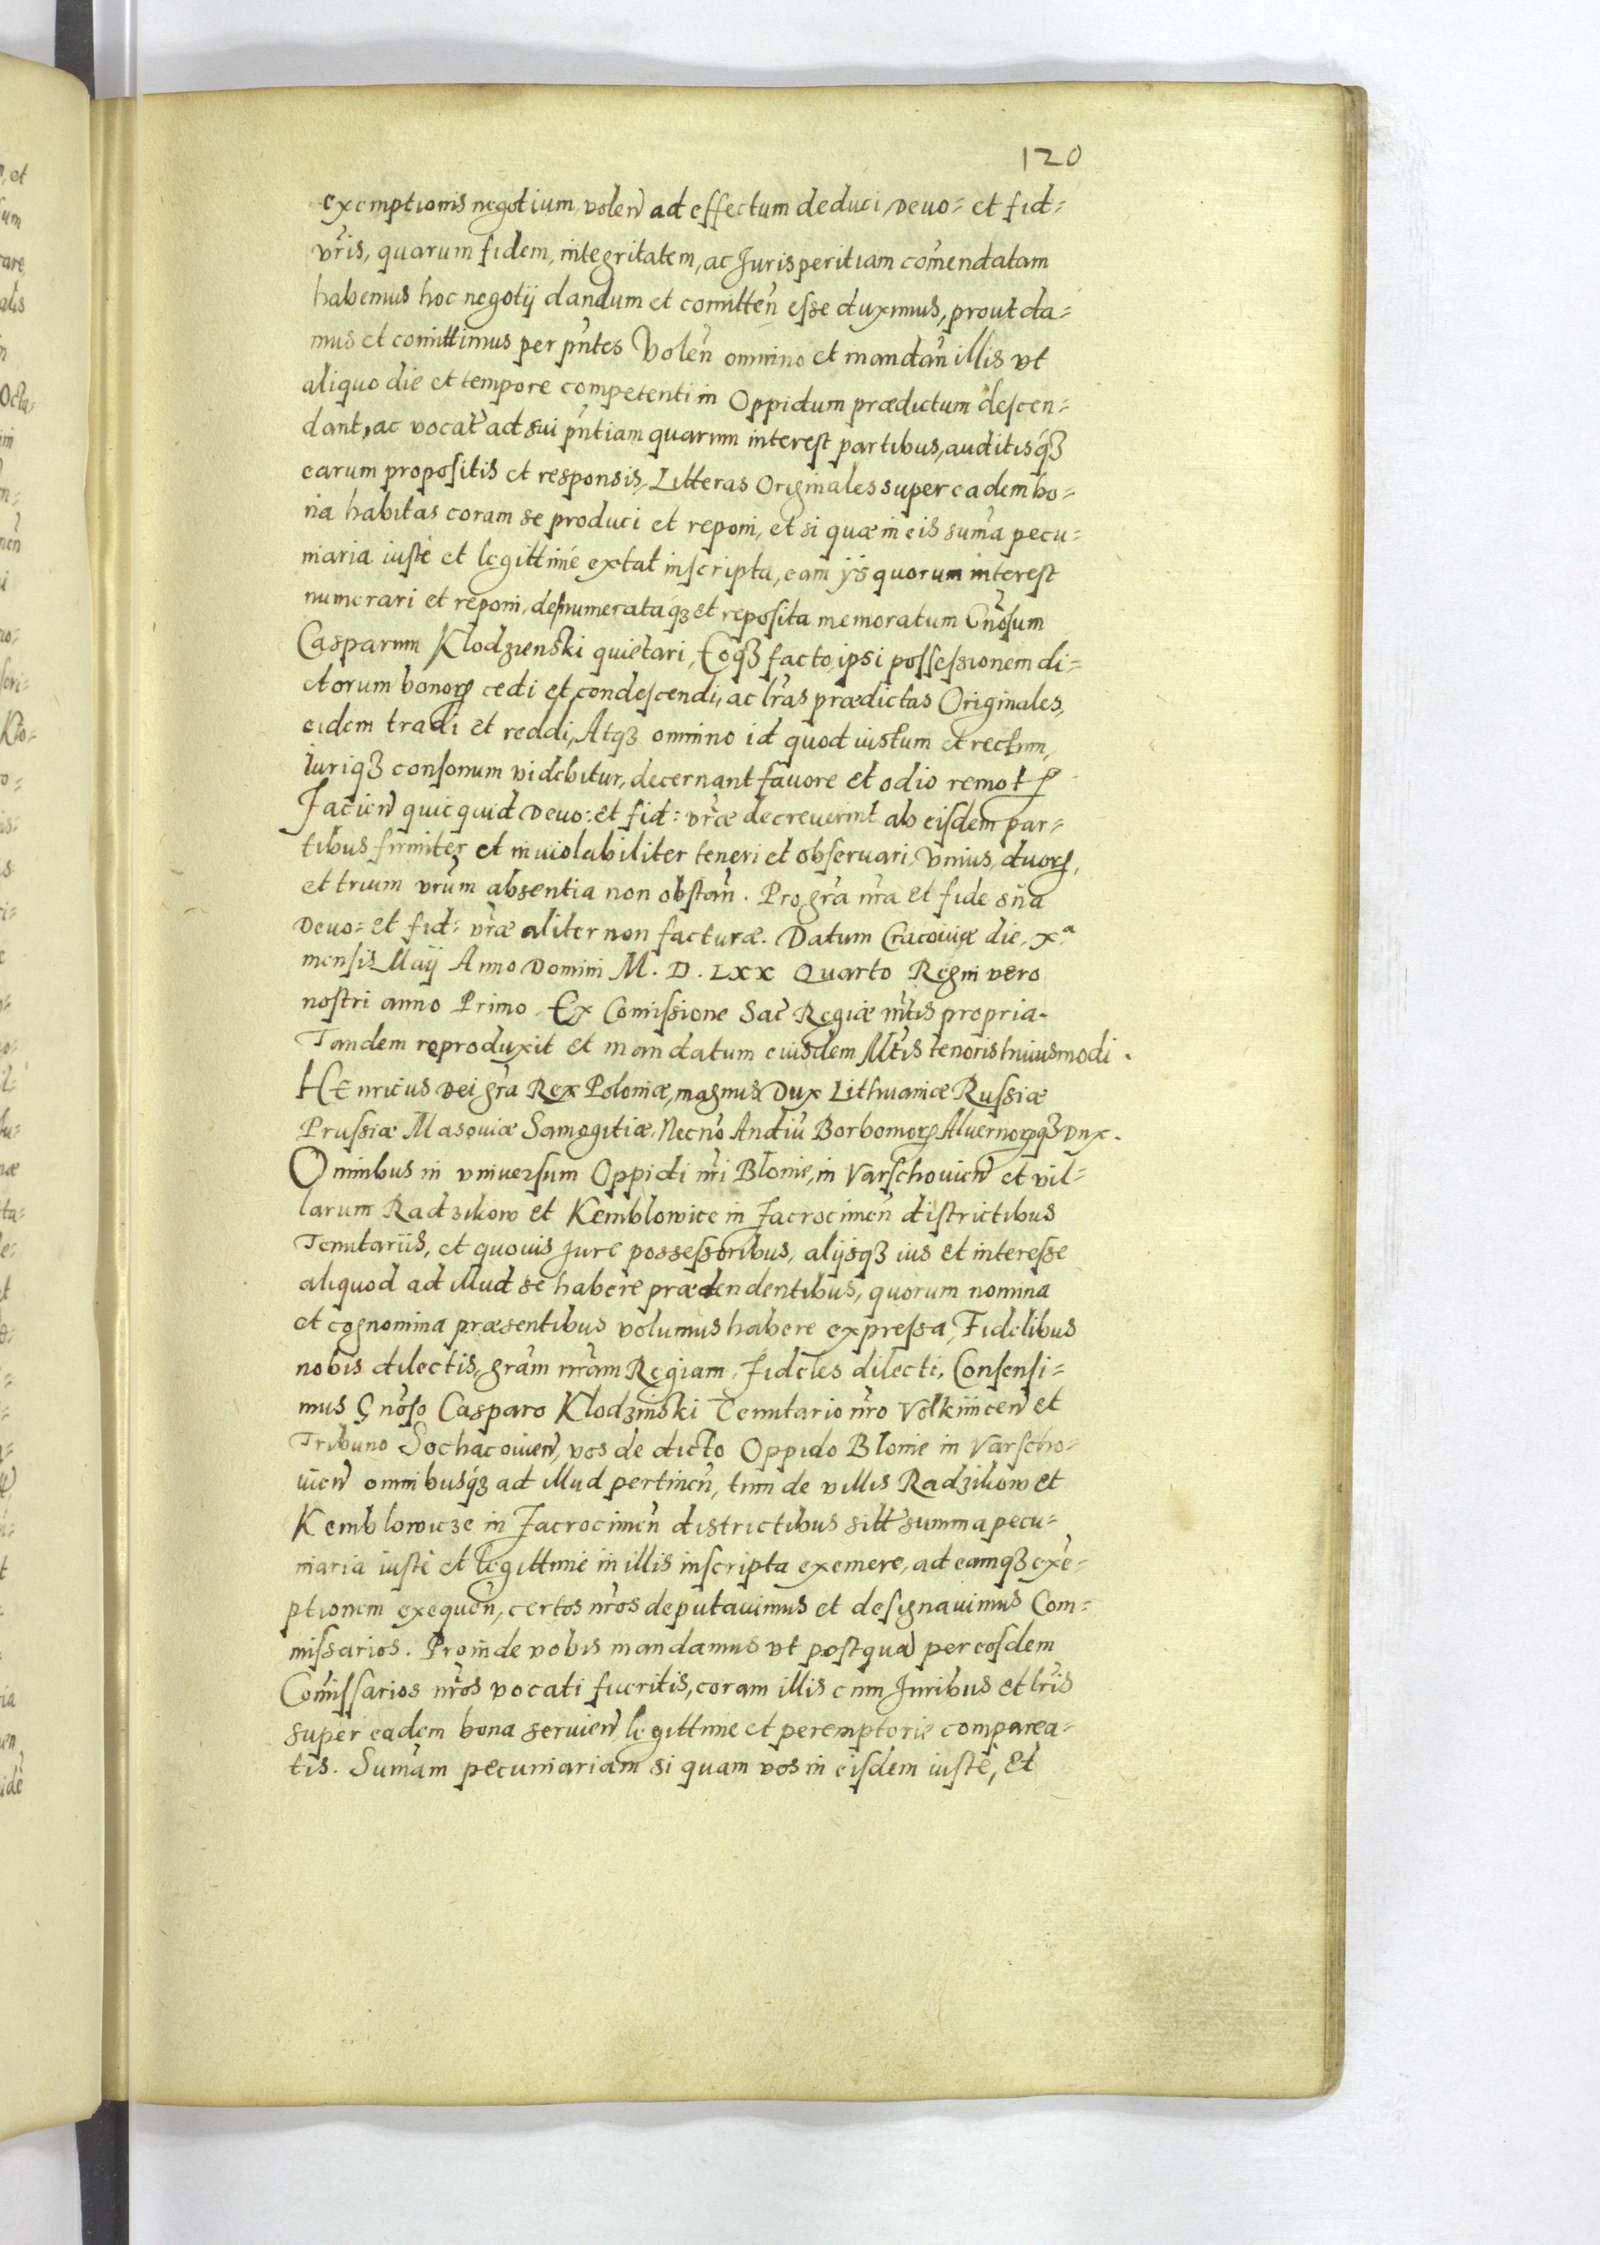 120
exemptionis negotium, volen̄ ad effectum deduci, Deuo= et fid=
vr̄is, quarum fidem, integritatem, ac Jurisperitiam com̄endatam
habemus hoc negotij dandum et com̄itten̄ esse duximus, prout da=
mus et com̄ittimus per pn̄tes Volen̄ omnino et mandan̄ illis vt
aliquo die et tempore competenti in Oppidum prædictum descen=
dant, ac vocat̄ ad sui pn̄tiam quarum interest partibus, auditisqȝ
earum propositis et responsis, Litteras Originales super eadem bo=
na habitas coram se produci et reponi, et si quæ in eis sum̄a pecu=
niaria iustè et legittimè extat inscripta, eam ijs quorum interest
numerari et reponi, denumerataqȝ et reposita memoratum Gn̄osum
Casparum Klodzienski quietari, Eoqȝ facto, ipsi possessionem di=
ctorum bonorꝝ cedi et condescendi, ac lr̄as prædictas Originales,
eidem tradi et reddi, Atqȝ omnino id quod iustum et rectum,
Iuriqȝ consonum videbitur, decernant fauore et odio remotꝫ
Facien̄ quicquid Deuo: et fid: vr̄æ decreuerint ab eisdem par=
tibus firmiter et inuiolabiliter teneri et obseruari, Vnius, duorꝝ,
et trium vr̄um absentia non obstan̄. Pro gr̄a nr̄a et fide sn̄a
Deuo= et fid= vr̄æ aliter non facturæ. Datum Cracouiæ die, xᵃ
mensis Maij Anno Domini M. D. LXX Quarto Regni vero
nostri anno Primo. Ex Comissione Sac̄ Regiæ mt̄is propria.
Tandem reproduxit et mandatum eiusdem Mt̄is tenoris huiusmodi.
HEnricus Dei gr̄a Rex Poloniæ, magnus Dux Lithuaniæ Russiæ
Prussiæ Masouiæ Samogitiæ, Necnō Andiū Borbomorꝝ Aluernorꝝqȝ Dux.
Omnibus in vniuersum Oppidi nr̄i Blonie, in Varschouien̄ et vil=
larum Radzikow et Kemblowice in Jacrocimen̄ districtibus
Tenutariis, et quouis Jure possessoribus, alijsqȝ ius et interesse
aliquod ad illud se habere prætendentibus, quorum nomina
et cognomina præsentibus volumus habere expressa, Fidelibus
nobis dilectis, gr̄am nr̄am Regiam. Fideles dilecti, Consensi=
mus Gn̄oso Casparo Klodzinski Tenutario nr̄o Volkimcen̄ et
Tribuno Sochacouien̄, vos de dicto Oppido Blonie in Varscho=
uien̄ omnibusqȝ ad illud pertinen̄, tum de villis Radzikow et
Kemblowicze in Jacrocimen̄ districtibus sitt̄ summa pecu=
niaria iustè et legittimè in illis inscripta exemere, ad eamqȝ exē=
ptionem exequen̄, certos nr̄os deputauimus et designauimus Com=
missarios. Proinde vobis mandamus vt postquā per eosdem
Com̄issarios nr̄os vocati fueritis, coram illis cum Juribus et lr̄is
super eadem bona seruien̄ legittimè et peremptoriè comparea=
tis. Sum̄am pecuniariam si quam vos in eisdem iustè, et